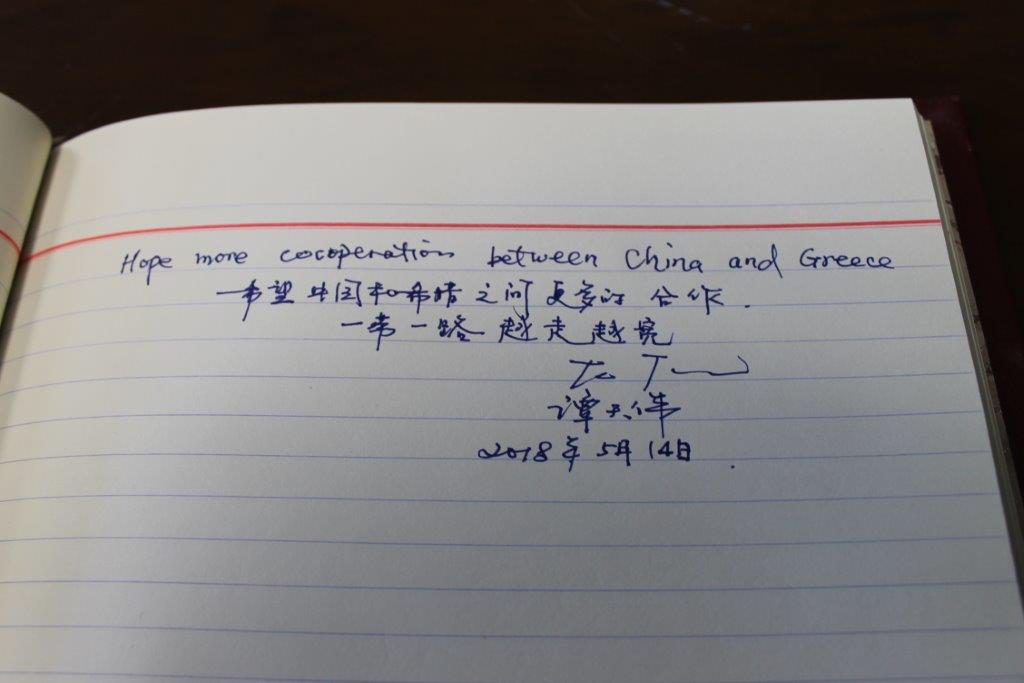 Hope more cocoperation between China and Greece
希望中国和希腊之间更多的合作.
一带一路越走越宽
谭天伟
2018年5月14日.